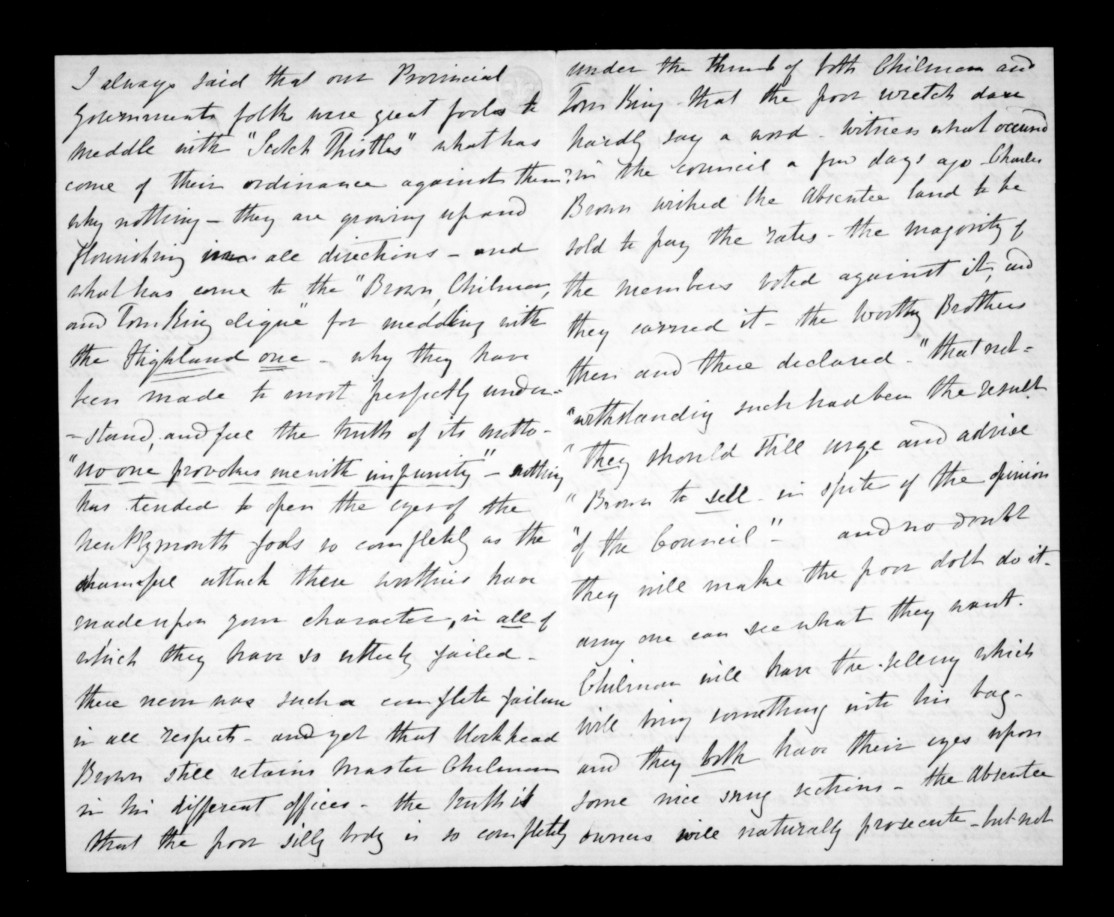 I always said that our Provincial
Governments folk were great fools to
meddle with "Scotch Thistles" what has
come of their ordinance against them?
why nothing - they are growing up and
flourishing in all directions - and
what has come to the "Brown, Chilman,
and Tom King clique" for meddling with
the Highland one - why they have
been made to most perfectly under-
-stand, and feel the truth of its motto -
"no one provokes me with impunity" - nothing
has tended to open the eyes of the
New Plymouth fools so completely as the
shameful attack these worthies have
made upon your character, in all of
which they have so utterly failed -
there never was such a complete failure
in all respects - and yet that blockhead
Brown still retains Master Chilman
in his different offices - the truth is
that the poor silly body is so completely
under the thumb of both Chilman and
Tom King - that the poor wretch dare
hardly say a word - witness what occurred
in the Council a few days ago - Charles
Brown wished the Absentee land to be
sold to pay the rates - the majority of
the members voted against it, and
they carried it - the worthy Brothers
then and there declared - "that not-
"withstanding such had been the result
"they should still urge and advise
"Brown to sell - in spite of the opinion
"of the Council" - and no doubt
they will make the poor dolt do it -
any one can see what they want.
Chilman will have the selling which
will bring something into his bag -
and they both have their eyes upon
some nice snug sections - the Absentee
owners will naturally prosecute - but not